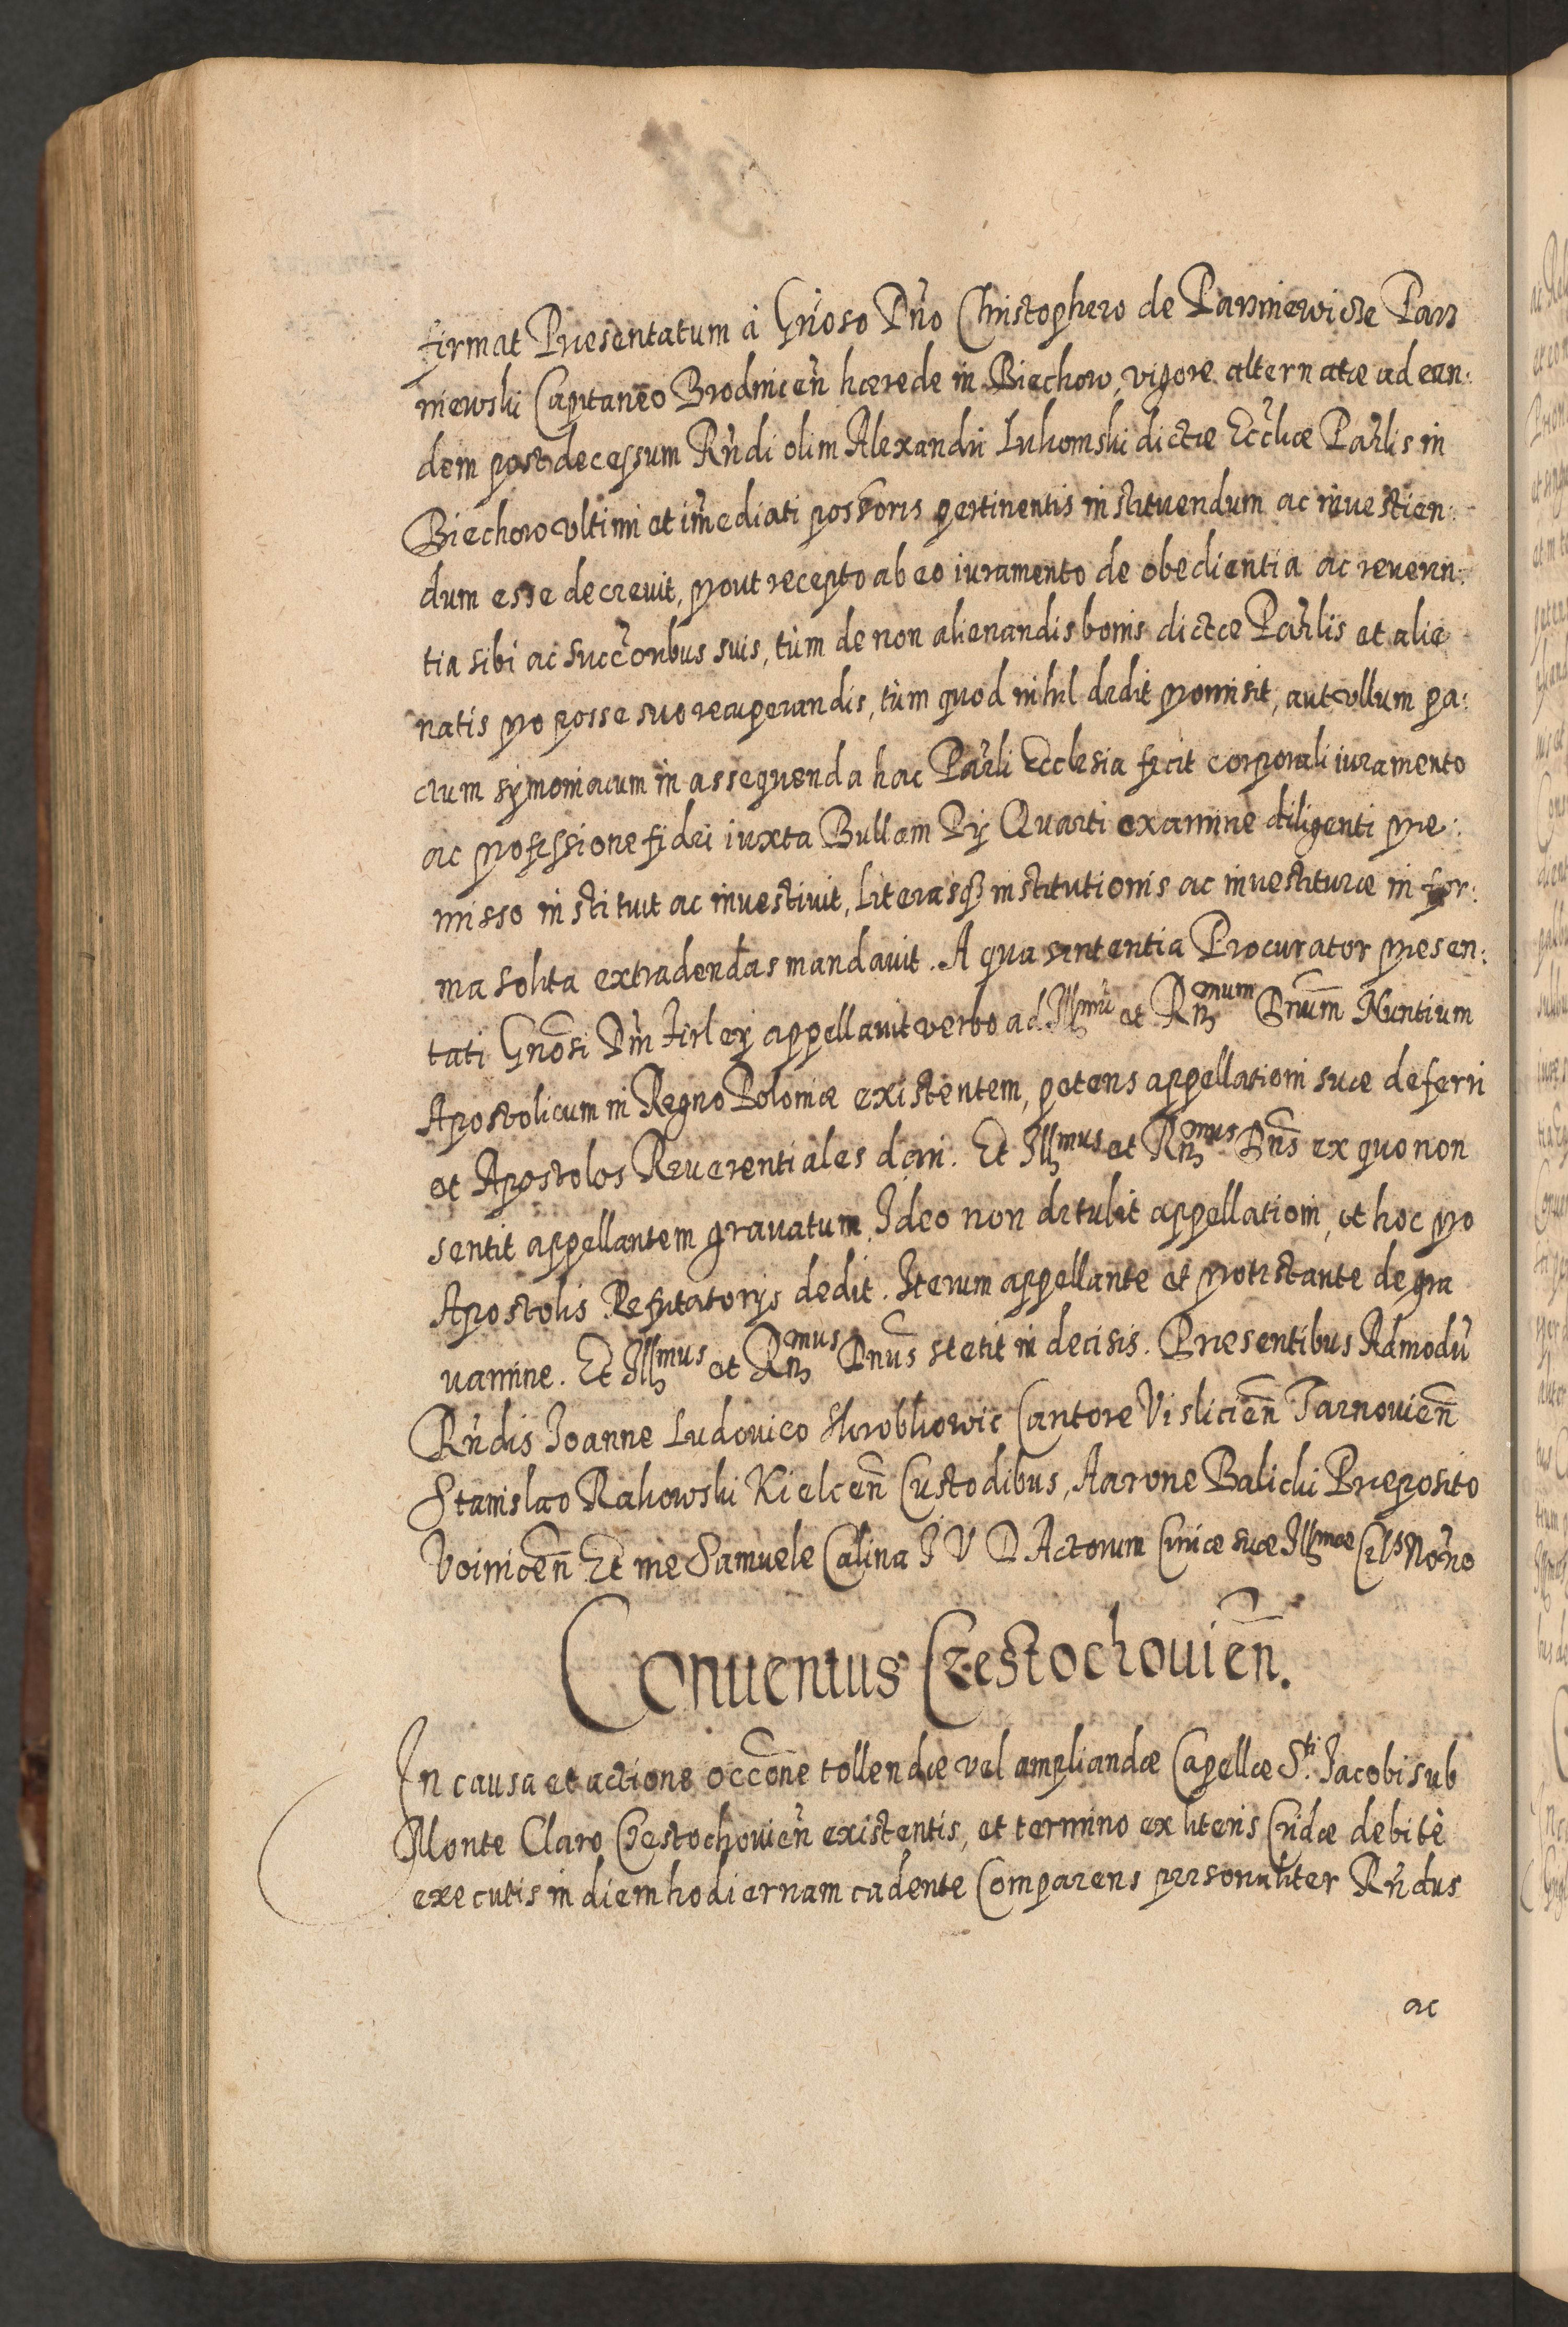 firmat Præsentatum à Gnoso Dno Christophero de Parzniewicze Parz
niewski Capitaneo Brodnicen hærede in Biechow, vigore alternatæ ad ean:
dem post decessum Rndi olim Alexandri Lukomski dictæ Ecclæ Parlis in
Biechow ultimi et imediati possoris pertinentis instituendum ac inuestien:
dum esse decreuit, prout recepto ab eo iuramento de obedientia ac reueren:
tia sibi ac succoribus suis, tùm de non alienandis bonis dictæ Parlis et alie
natis pro posse suo recuperandis, tùm quod nihil dedit promisit, aut ullum pa:
ctum symoniacum in assequenda hac Parli Ecclesia fecit corporali iuramento
ac professione fidei iuxta Bullam Pij Quarti examine diligenti præ:
misso instituit ac inuestiuit, literasq institutionis ac inuestituræ in for:
ma solita extradendas mandauit. A qua sententia Procurator præsen:
tati Gnosi Dni Firley appellauit verbo ad Illmu et Rmum Dnum Nuntium
Apostolicum in Regno Poloniæ existentem, petens appellationi suæ deferri
et Apostolos Reuerentiales dari. Et Illmus et Rmus Dns ex quo non
sentit appellantem grauatum, Ideo non detulit appellationi, et hoc pro
Apostolis Refutatorijs dedit. Iterum appellante et protestante de gra
uamine. Et Illmus et Rmus Dnus stetit in decisis. Præsentibus Admodu
Rndis Ioanne Ludouico Skrobkowic Cantore Vislicien Tarnouien
Stanislao Rakowski Kielcen Custodibus, Aarone Balicki Præposito
Voinicen Et me Samuele Calina I V D Actorum Curiæ suæ Illmæ Cels Norio
Conuentus Czestochouien.
In causa et actione occone tollendæ vel ampliandæ Capellæ Sti Iacobi sub
Monte Claro Czestochouien existentis, et termino ex literis Cridæ debitè
executis in diem hodiernam cadente Comparens personaliter Rndus
ac